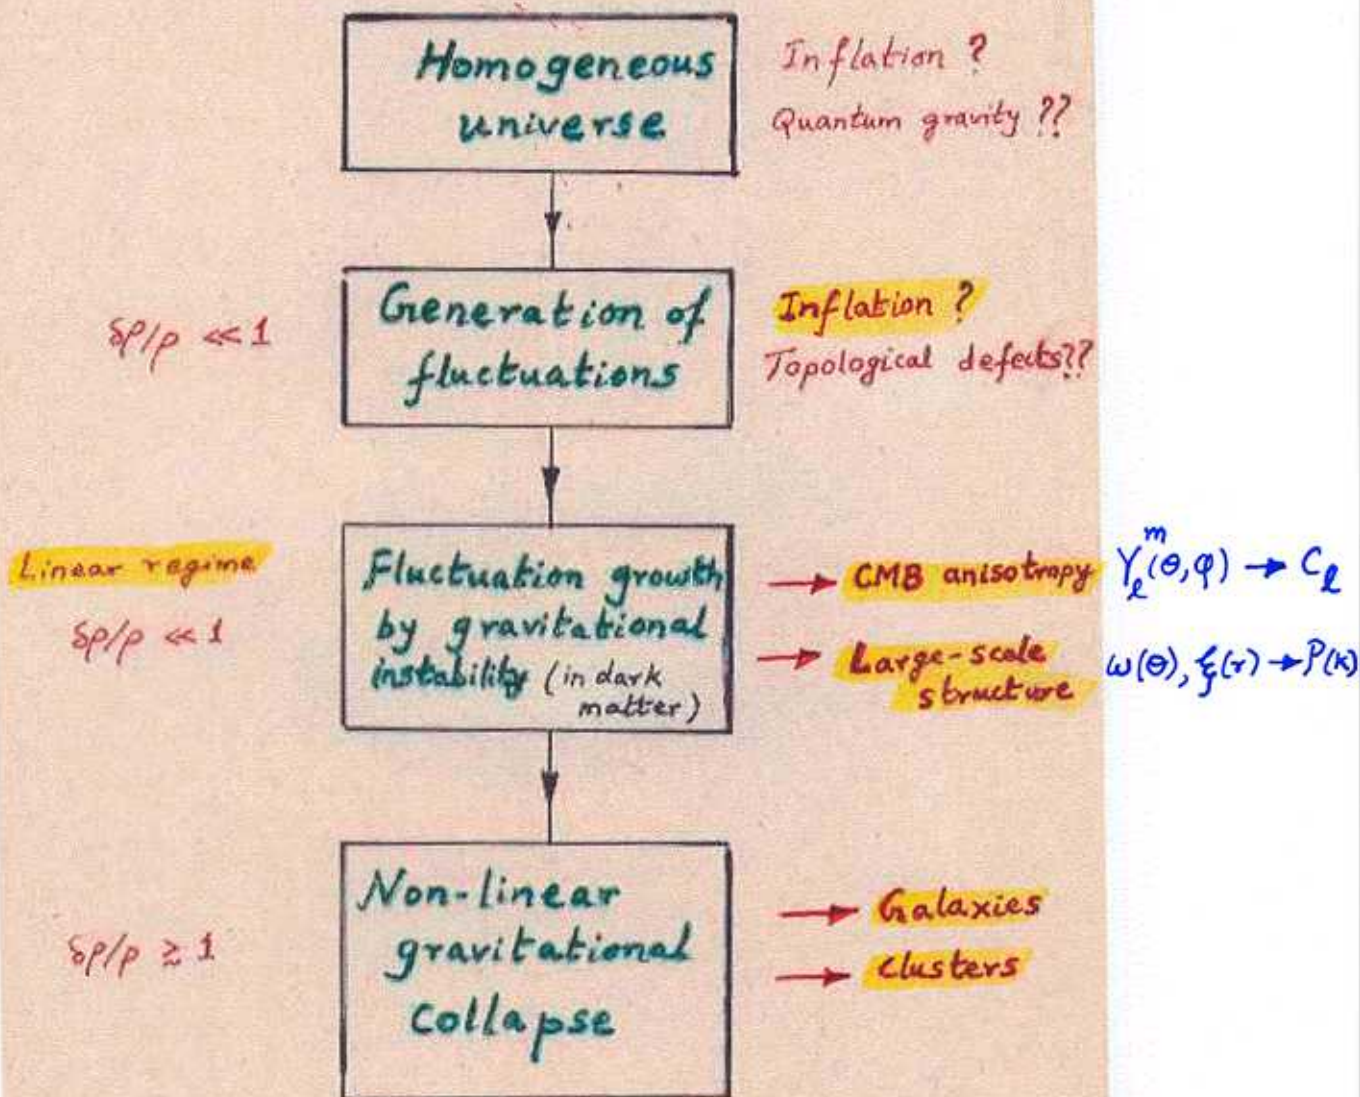 Homogeneous
universe
Inflation ?
Quantum gravity ??
δρ/ρ ≪ 1
Generation of
fluctuations
Inflation ?
Topological defects??
Linear regime
δρ/ρ ≪ 1
Fluctuation growth
by gravitational
instability (in dark
matter)
→ CMB anisotropy
Y_ℓ^m(θ,φ) → C_ℓ
→ Large-scale
structure
ω(θ), ξ(r) → P(k)
δρ/ρ ≳ 1
Non-linear
gravitational
collapse
→ Galaxies
→ Clusters